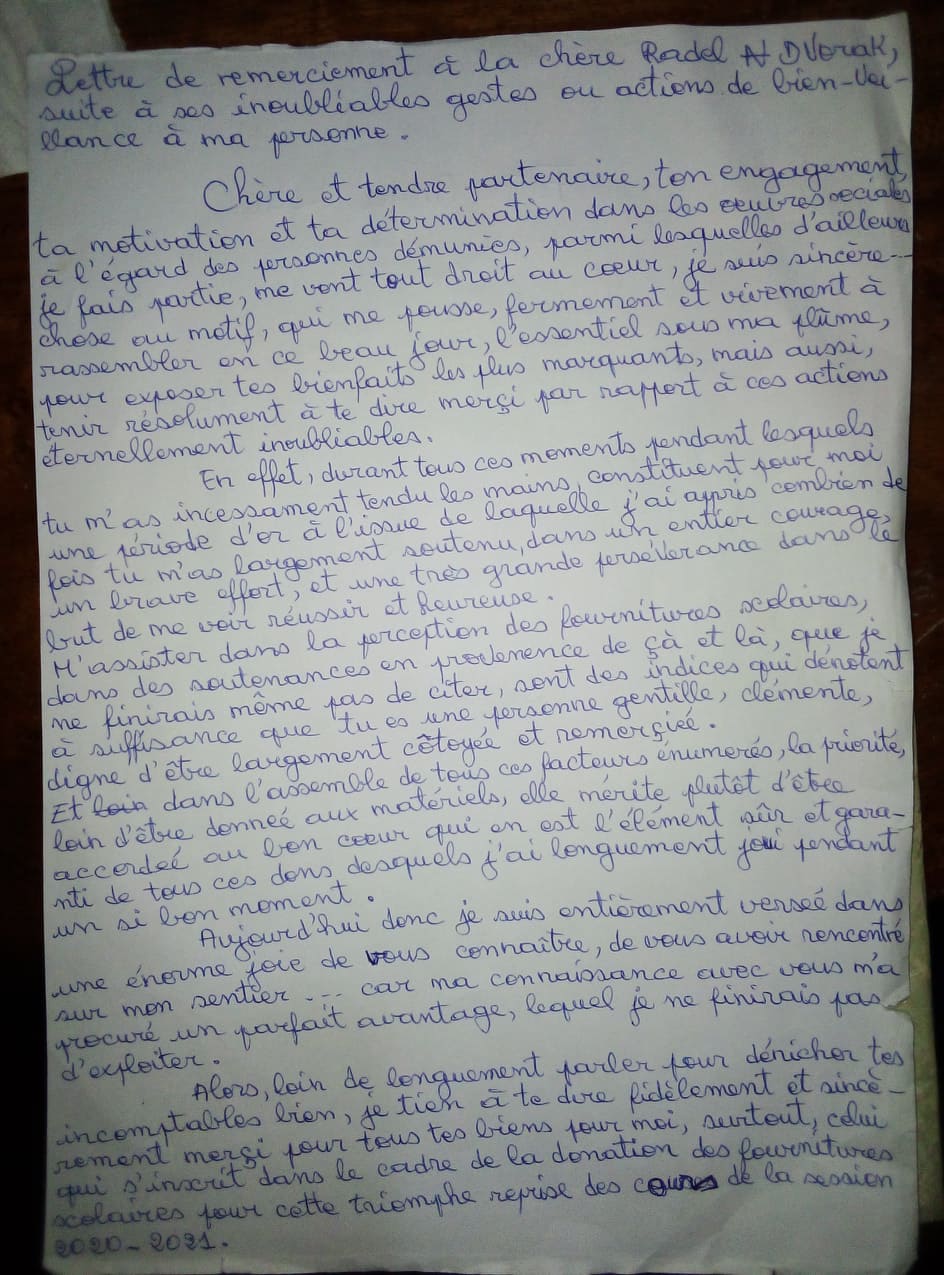 Lettre de remerciement à la chère Radel A DVorak,
suite à ses inoubliables gestes ou actions de bien-vei-
llance à ma personne.
Chère et tendre partenaire, ton engagement,
ta motivation et ta détermination dans les œuvres sociales
à l'égard des personnes démunies, parmi lesquelles d'ailleurs
je fais partie, me vont tout droit au cœur, je suis sincère---
chose ou motif, qui me pousse, fermement et vivement à
rassembler en ce beau jour, l'essentiel sous ma plûme,
pour exposer tes bienfaits les plus marquants, mais aussi,
tenir résolument à te dire merçi par rapport à ces actions
éternellement inoubliables.
En effet, durant tous ces moments pendant lesquels
tu m'as incessament tendu les mains, constituent pour moi
une période d'or à l'issue de laquelle j'ai appris combien de
fois tu m'as largement soutenu, dans un entier courage,
un brave effort, et une très grande persévérance dans le
but de me voir réussir et heureuse.
M'assister dans la perception des fournitures scolaires,
dans des soutenances en provenence de çà et là, que je
ne finirais même pas de citer, sont des indices qui dénotent
à suffisance que tu es une personne gentille, clémente,
digne d'être largement côtoyée et remerçiée.
Et loin dans l'assemble de tous ces facteurs énumerés, la priorité,
loin d'être donneé aux matériels, elle mérite plutôt d'être
accordeé au bon cœur qui en est l'élément sûr et gara-
nti de tous ces dons desquels j'ai longuement joui pendant
un si bon moment.
Aujourd'hui donc je suis entièrement verseé dans
une énorme joie de vous connaître, de vous avoir rencontré
sur mon sentier --- car ma connaissance avec vous m'a
procuré un parfait avantage, lequel je ne finirais pas
d'exploiter.
Alors, loin de longuement parler pour dénicher tes
incomptables bien, je tien à te dire fidèlement et sincè-
rement merçi pour tous tes biens pour moi, surtout, celui
qui s'inscrit dans le cadre de la donation des fournitures
scolaires pour cette triomphe reprise des cours de la session
2020-2021.